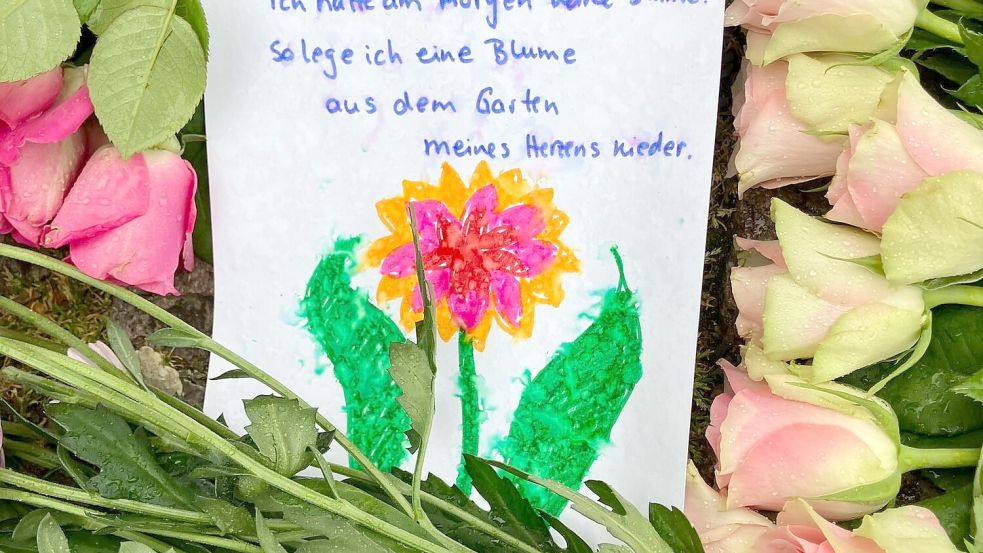 ich hatte am Morgen keine Blume.
So lege ich eine Blume
aus dem Garten
meines Herzens nieder.